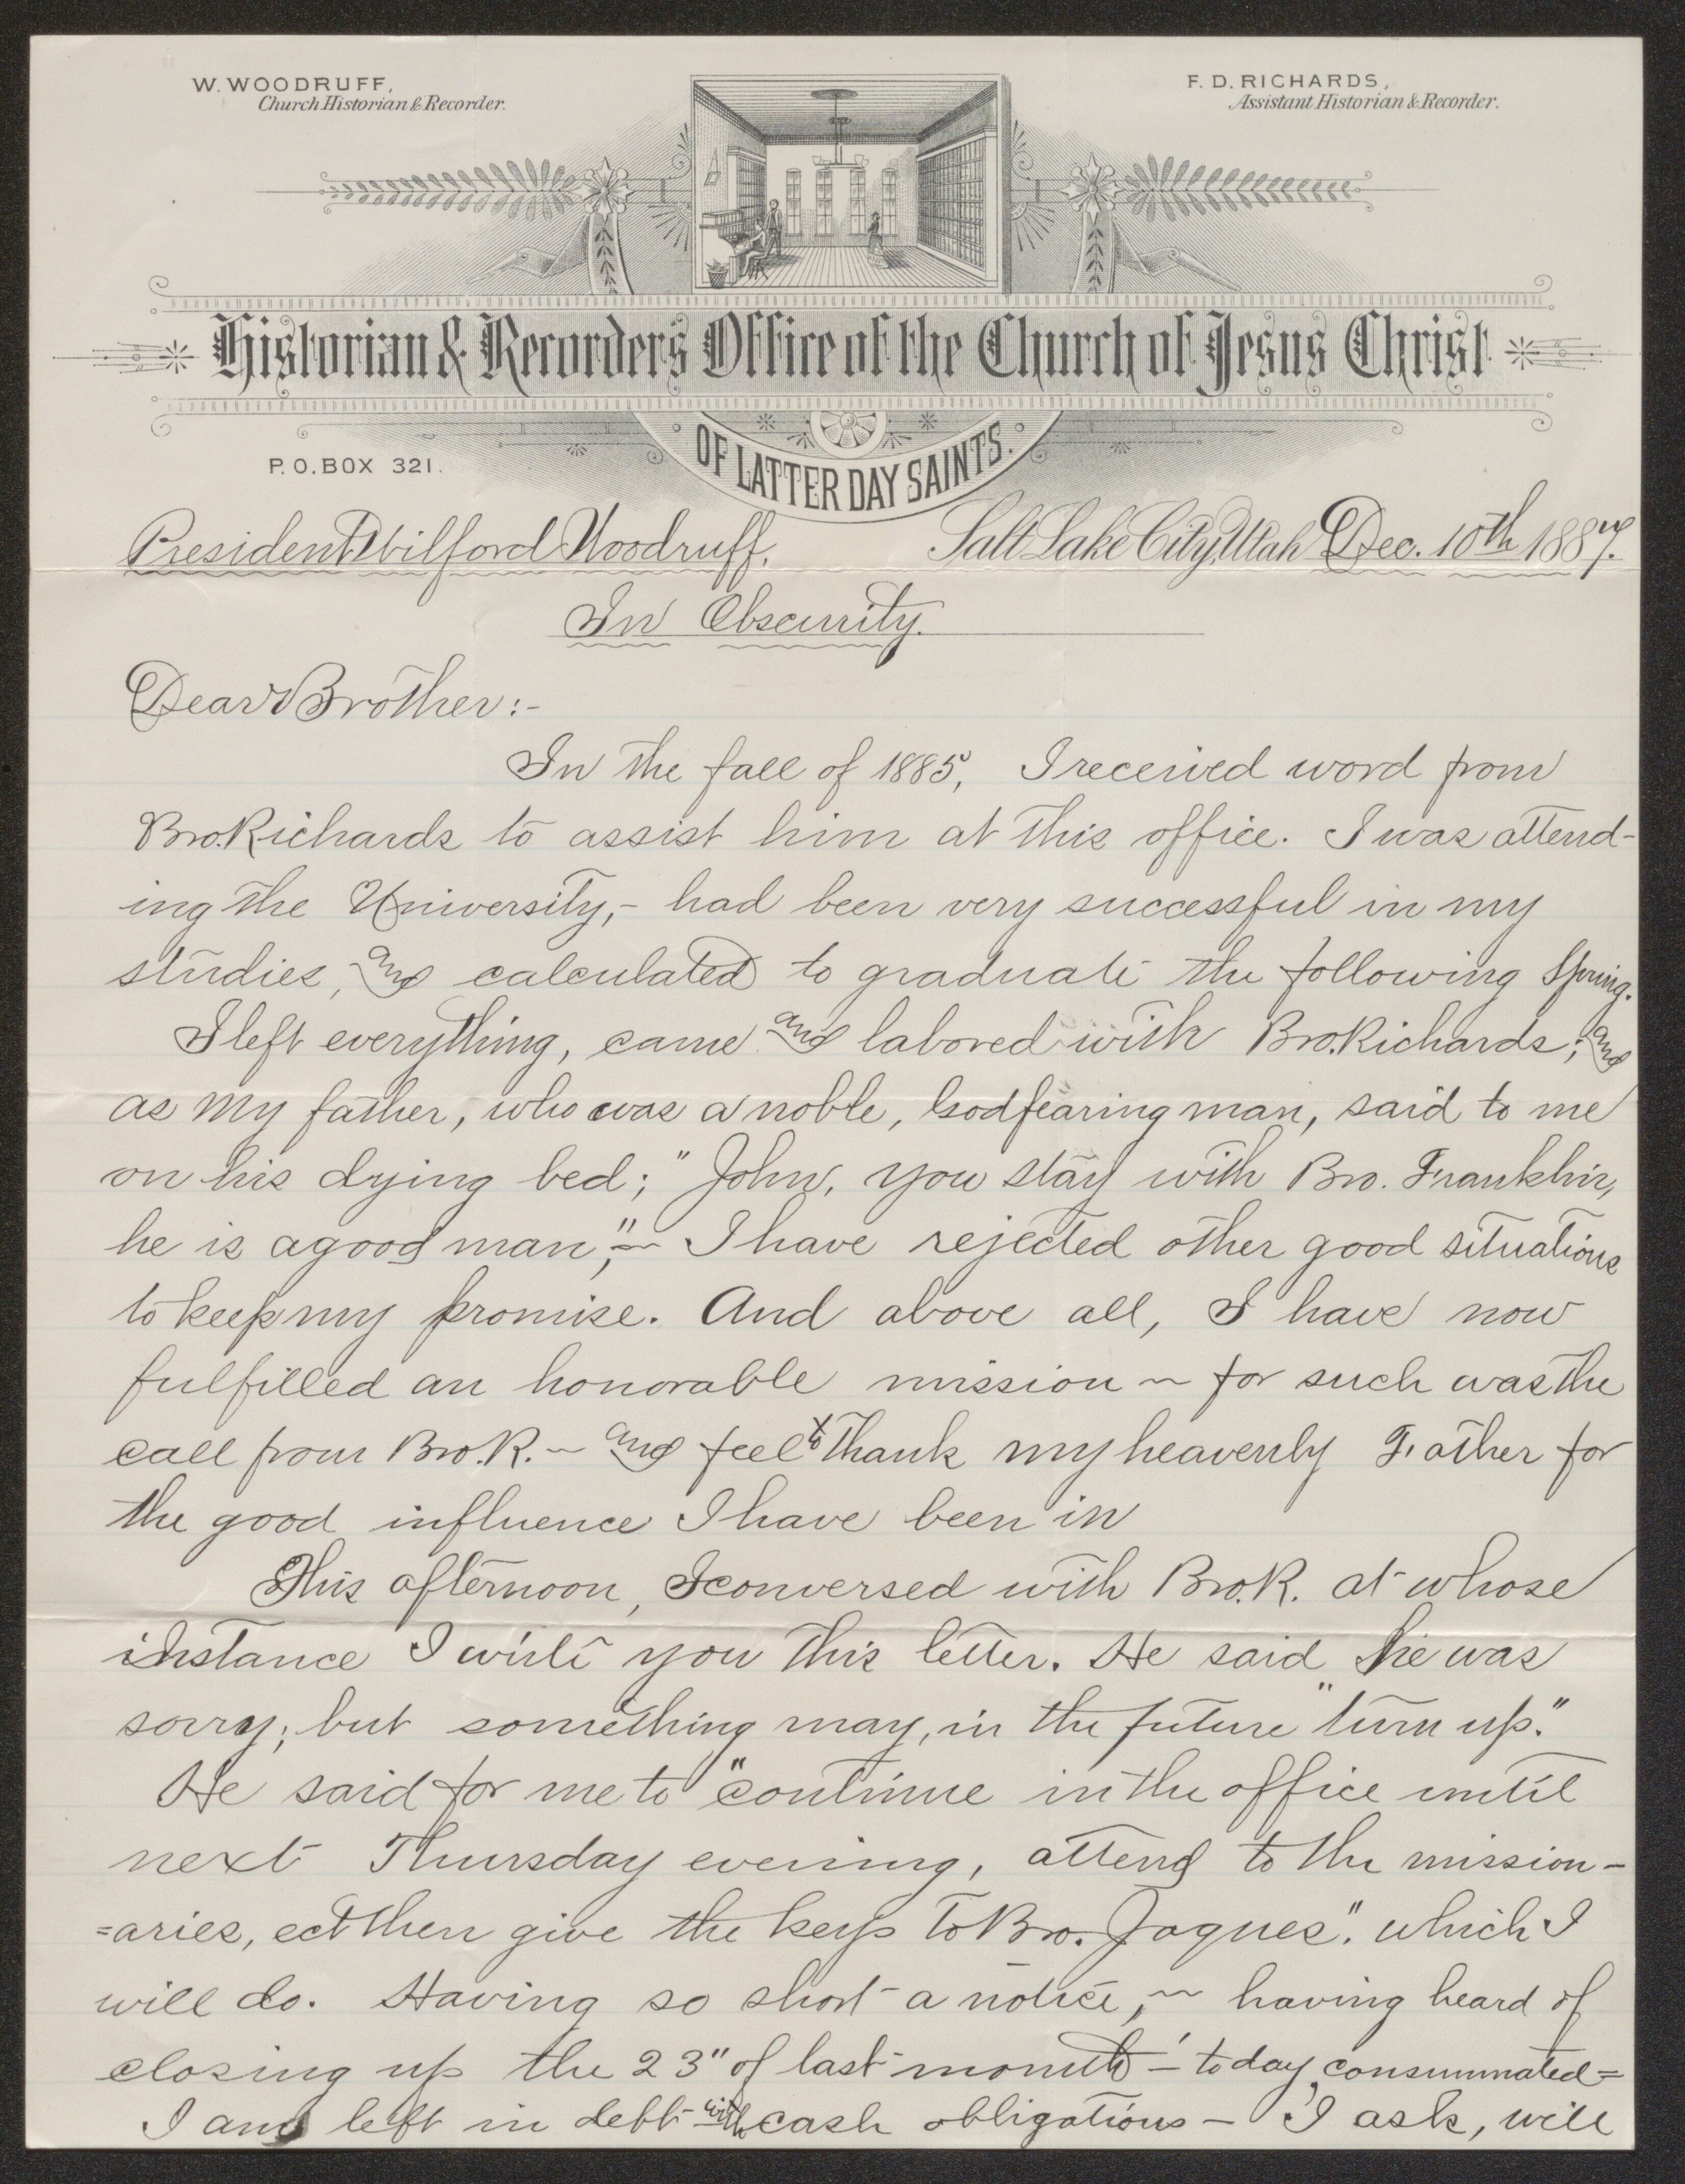 W. WOODRUFF,
Church Historian & Recorder.
F. D. RICHARDS,
Assistant Historian & Recorder.
Historian & Recorder's Office of the Church of Jesus Christ
OF LATTER DAY SAINTS.
P. O. BOX 321.
President Wilford Woodruff. Salt Lake City, Utah Dec. 10th 1887.
In Obscurity.
Dear Brother:-
In the fall of 1885, I received word from
Bro. Richards to assist him at this office. I was attend-
ing the University,- had been very successful in my
studies, and calculated to graduate the following Spring.
I left everything, came and labored with Bro. Richards; and
as my father, who was a noble, Godfearing man, said to me
on his dying bed; "John, you stay with Bro. Franklin,
he is a good man," ~ I have rejected other good situations
to keep my promise. And above all, I have now
fulfilled an honorable mission ~ for such was the
call from Bro. R. ~ and feel to thank my heavenly Father for
the good influence I have been in
This afternoon, I conversed with Bro. R. at whose
instance I write you this letter. He said he was
sorry; but something may, in the future "turn up."
He said for me to "continue in the office until
next Thursday evening, attend to the mission-
=aries, ect then give the keys to Bro. Jaques". which I
will do. Having so short a notice, ~ having heard of
closing up the 23" of last month - today, consummated =
I am left in debt with cash obligations - I ask, will